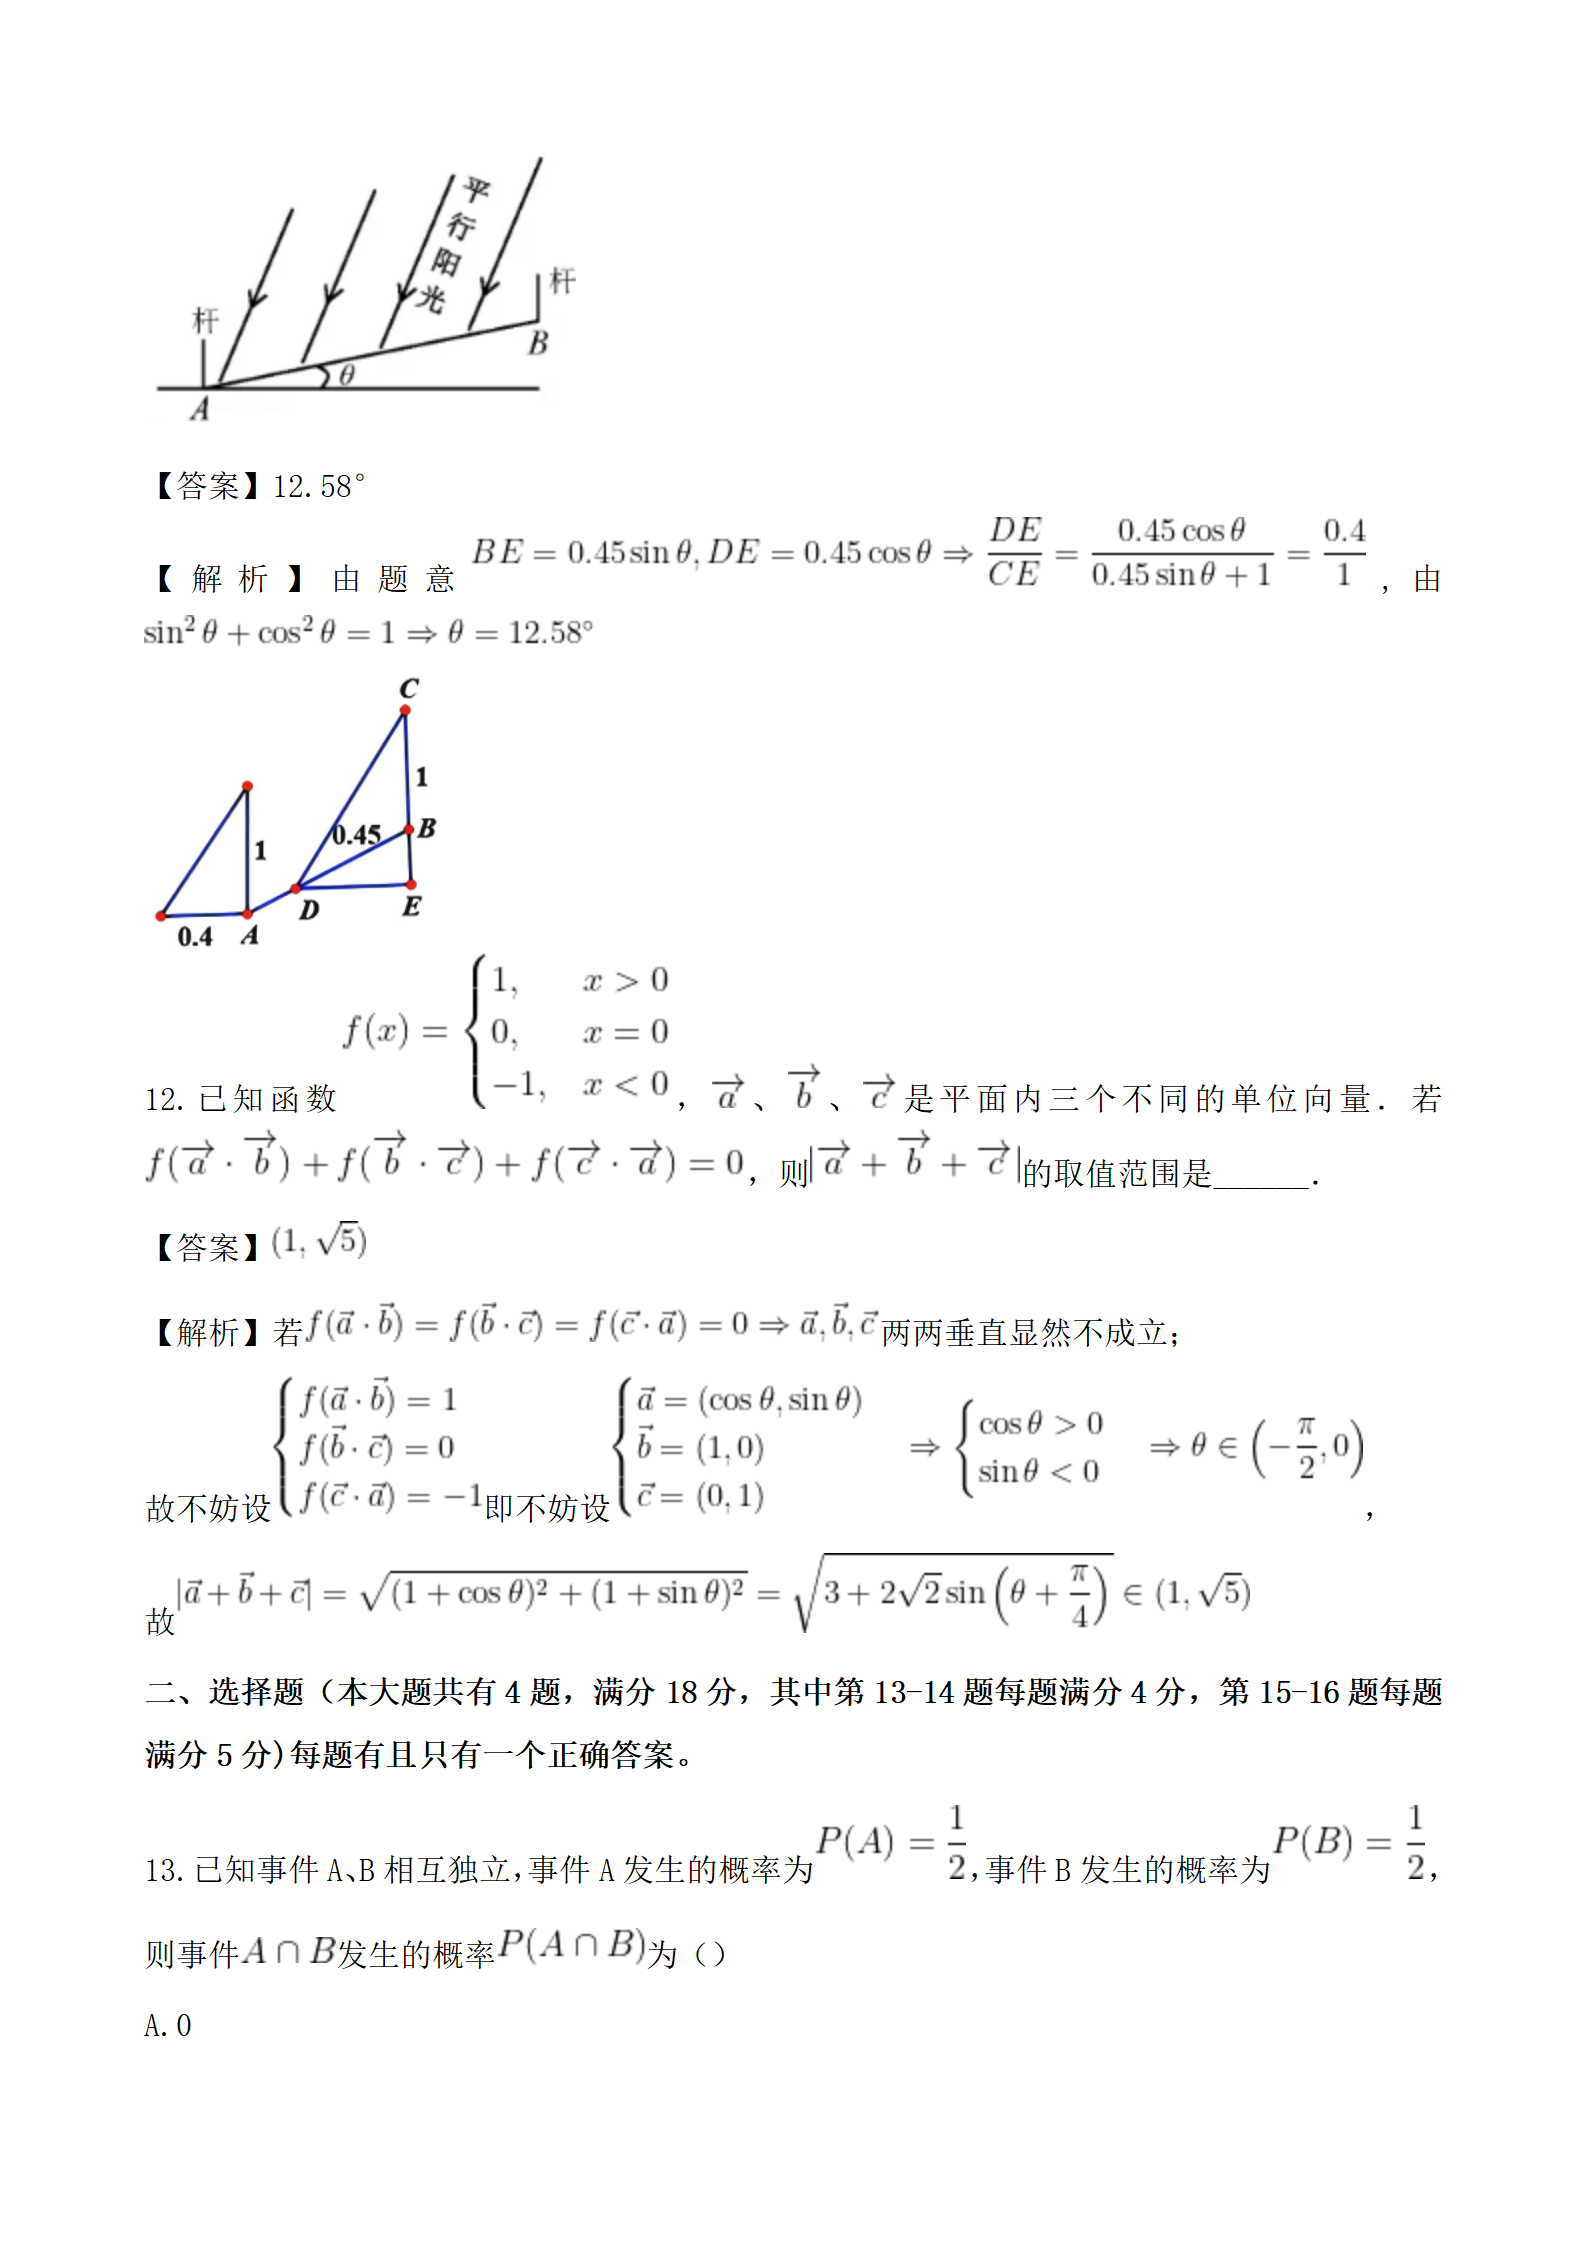 平行阳光
杆
杆
B
θ
A
【答案】12.58°
【解析】由题意 BE = 0.45 sin θ, DE = 0.45 cos θ ⇒ DE/CE = (0.45 cos θ)/(0.45 sin θ + 1) = 0.4/1 , 由
sin² θ + cos² θ = 1 ⇒ θ = 12.58°
C
1
0.45
B
1
D
E
0.4
A
12.已知函数 f(x) = { 1, x > 0; 0, x = 0; −1, x < 0 , a⃗、b⃗、c⃗是平面内三个不同的单位向量. 若
f(a⃗ · b⃗) + f(b⃗ · c⃗) + f(c⃗ · a⃗) = 0, 则|a⃗ + b⃗ + c⃗|的取值范围是______.
【答案】(1, √5)
【解析】若f(a⃗ · b⃗) = f(b⃗ · c⃗) = f(c⃗ · a⃗) = 0 ⇒ a⃗, b⃗, c⃗两两垂直显然不成立;
故不妨设{ f(a⃗ · b⃗) = 1; f(b⃗ · c⃗) = 0; f(c⃗ · a⃗) = −1 即不妨设{ a⃗ = (cos θ, sin θ); b⃗ = (1, 0); c⃗ = (0, 1) ⇒ { cos θ > 0; sin θ < 0 ⇒ θ ∈ (−π/2, 0),
故|a⃗ + b⃗ + c⃗| = √((1 + cos θ)² + (1 + sin θ)²) = √(3 + 2√2 sin(θ + π/4)) ∈ (1, √5)
二、选择题（本大题共有 4 题，满分 18 分，其中第 13-14 题每题满分 4 分，第 15-16 题每题
满分 5 分)每题有且只有一个正确答案。
13.已知事件 A、B 相互独立,事件 A 发生的概率为P(A) = 1/2,事件 B 发生的概率为P(B) = 1/2,
则事件A ∩ B发生的概率P(A ∩ B)为（）
A.0